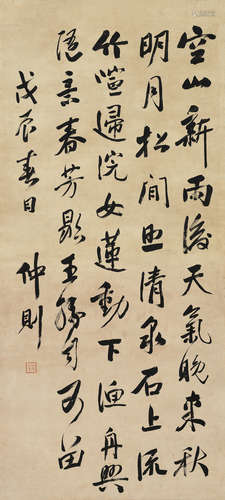 空山新雨後天氣晚来秋
明月松间照清泉石上流
竹喧歸浣女蓮動下漁舟興
隨意春芳歇王孫自可留
戊辰春日 仲則